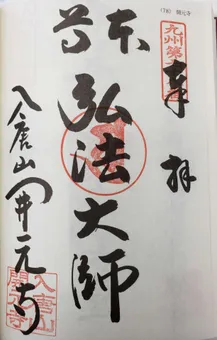 九州第
奉拝
本尊
弘法大師
入唐山開元寺
入唐山
開元寺